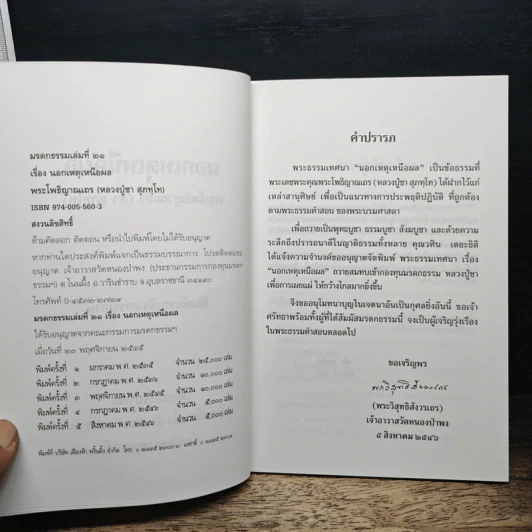 มรดกธรรมเล่มที่ ๒๑
เรื่อง นอกเหตุเหนือผล
พระโพธิญาณเถร (หลวงปู่ชา สุภทฺโท)
ISBN 974-005-560-3
สงวนลิขสิทธิ์
ห้ามคัดลอก ตัดตอน หรือนำไปพิมพ์โดยไม่ได้รับอนุญาต
หากท่านใดประสงค์พิมพ์แจกเป็นธรรมบรรณาการ โปรดติดต่อขอ
อนุญาต เจ้าอาวาสวัดหนองป่าพง (ประธานกรรมการกองทุนมรดก
ธรรมฯ) ต.โนนผึ้ง อ.วารินชำราบ จ.อุบลราชธานี ๓๔๑๙๐
โทรศัพท์
มรดกธรรมเล่มที่ ๒๑ เรื่อง นอกเหตุเหนือผล
ได้รับอนุญาตจากคณะกรรมการมรดกธรรมฯ
เมื่อวันที่ ๒๓ พฤศจิกายน ๒๕๔๕
พิมพ์ครั้งที่ ๑ มกราคม พ.ศ. จำนวน ๒๕,๐๐๐ เล่ม
พิมพ์ครั้งที่ ๒ กรกฎาคม พ.ศ. จำนวน ๑๐,๐๐๐ เล่ม
พิมพ์ครั้งที่ ๓ พฤศจิกายน พ.ศ. ๒๕๔๕ จำนวน ๑๐,๐๐๐ เล่ม
พิมพ์ครั้งที่ ๔ กรกฎาคม พ.ศ. ๒๕๔๖ จำนวน ๕,๐๐๐ เล่ม
พิมพ์ครั้งที่ ๕ สิงหาคม พ.ศ. ๒๕๔๖ จำนวน ๕,๐๐๐ เล่ม
พิมพ์ที่ บริษัท เฟื่องฟ้า พริ้นติ้ง จำกัด โทร.
คำปรารภ
พระธรรมเทศนา "นอกเหตุเหนือผล" เป็นข้อธรรมที่
พระเดชพระคุณพระโพธิญาณเถร (หลวงปู่ชา สุภทฺโท) ได้ฝากไว้แก่
เหล่าสานุศิษย์ เพื่อเป็นแนวทางการประพฤติปฏิบัติ ที่ถูกต้อง
ตามพระธรรมคำสอน ของพระบรมศาสดา
เพื่อถวายเป็นพุทธบูชา ธรรมบูชา สังฆบูชา และด้วยความ
ระลึกถึงปรารถนาดีในญาติธรรมทั้งหลาย คุณวศิน เตยะธิติ
ได้แจ้งความจำนงค์ขออนุญาตจัดพิมพ์ พระธรรมเทศนา เรื่อง
"นอกเหตุเหนือผล" ถวายสมทบเข้ากองทุนมรดกธรรม หลวงปู่ชา
เพื่อการเผยแผ่ ให้กว้างไกลมากยิ่งขึ้น
จึงขออนุโมทนาบุญในเจตนาอันเป็นกุศลยิ่งอันนี้ ขอเจ้า
ศรัทธาพร้อมทั้งผู้ที่ได้สัมผัสมรดกธรรมนี้ จงเป็นผู้เจริญรุ่งเรือง
ในพระธรรมคำสอนตลอดไป
ขอเจริญพร
(พระวิสุทธิสังวรเถร)
เจ้าอาวาสวัดหนองป่าพง
๕ สิงหาคม ๒๕๔๖